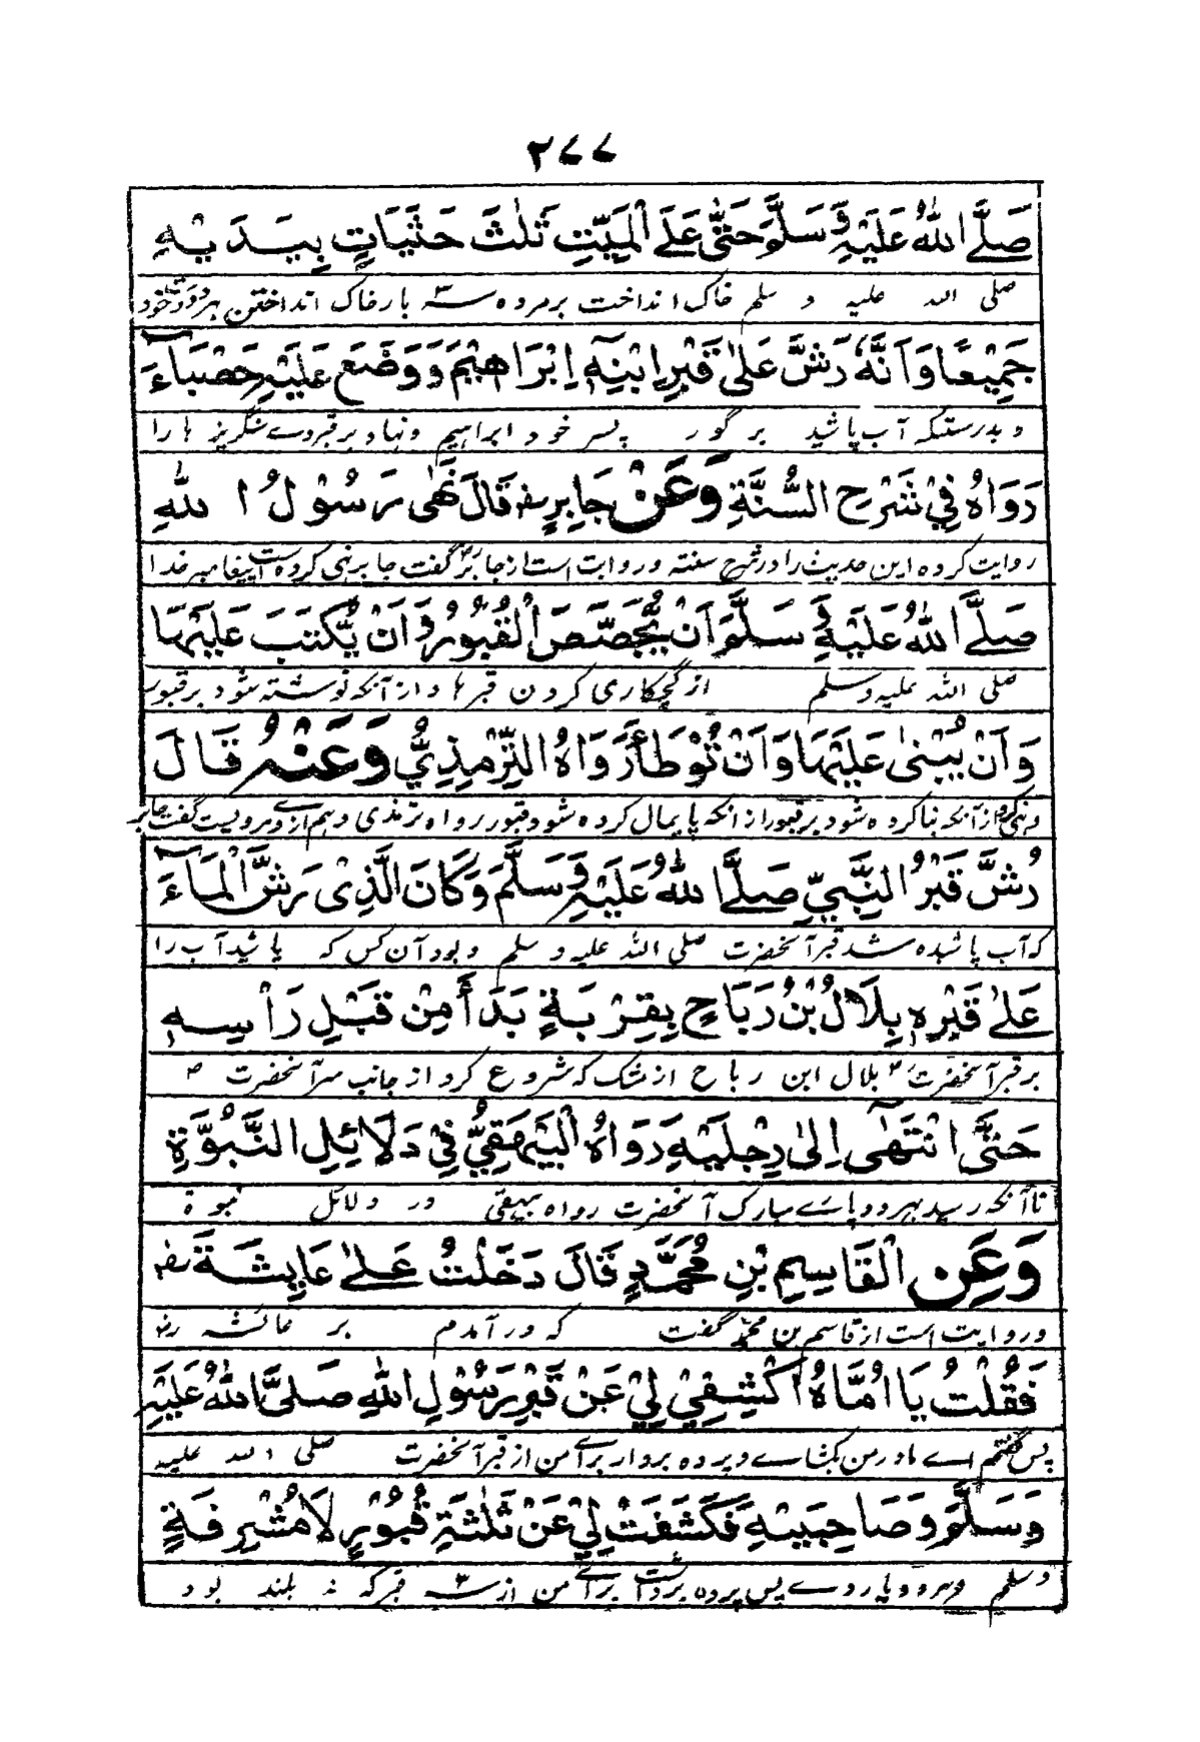 ۲۷۷
صَلَّے اللهُ عَلَيْهِ وَسَلَّمَ حَثٰى عَلَى الْمَيِّتِ ثَلٰثَ حَثَيَاتٍ بِيَدَيْهِ
صلی الله علیه و سلم خاک انداخت بر مرده سه بار خاک انداختن بهر دو دست خود
جَمِيْعًا وَاَنَّهٗ رَشَّ عَلٰى قَبْرِ ابْنِهٖ اِبْرَاهِيْمَ وَوَضَعَ عَلَيْهِ حَصْبَآءَ
و بدرستیکه آب پاشید بر گور پسر خود ابراهیم و نهاد بر قبر وے سنگریزه ها را
رَوَاهُ فِيْ شَرْحِ السُّنَّةِ وَعَنْ جَابِرٍ رض قَالَ نَهٰى رَسُوْلُ اللهِ
روایت کرده این حدیث را در شرح سنته و روایت است از جابر رض گفت جابر نهی کرده است پیغامبر خدا
صَلَّے اللهُ عَلَيْهِ وَسَلَّمَ اَنْ يُّجَصَّصَ الْقُبُوْرُ وَاَنْ يُّكْتَبَ عَلَيْهَا
صلی الله علیه وسلم از گچکاری کردن قبر ها و از آنکه نوشته شود بر قبور
وَاَنْ يُبْنٰى عَلَيْهَا وَاَنْ تُوْطَأَ رَوَاهُ التِّرْمِذِيُّ وَعَنْهُ قَالَ
و نهی کرد از آنکه بنا کرده شود بر قبور از انکه پایمال کرده شود قبور رواه ترمذی و هم از وے مرویست گفت جابر
رُشَّ قَبْرُ النَّبِيِّ صَلَّے اللهُ عَلَيْهِ وَسَلَّمَ وَكَانَ الَّذِىْ رَشَّ الْمَآءَ
که آب پاشیده شد قبر آنحضرت صلی الله علیه و سلم و بود آن کس که پاشید آب را
عَلٰے قَبْرِهٖ بِلَالُ بْنُ رَبَاحٍ بِقِرْبَةٍ بَدَأَ مِنْ قَبْلِ رَأْسِهٖ
بر قبر آنحضرت بلال ابن رباح از مشک که شروع کرد از جانب سر آنحضرت
حَتّٰى انْتَهٰٓى اِلٰى رِجْلَيْهِ رَوَاهُ الْبَيْهَقِيُّ فِيْ دَلَائِلِ النُّبُوَّةِ
تا آنکه رسید بهر دو پاے مبارک آنحضرت رواه بیهقی در دلائل نبوة
وَعَنِ الْقَاسِمِ بْنِ مُحَمَّدٍ قَالَ دَخَلْتُ عَلٰے عَايِشَةَ رض
و روایت است از قاسم بن محمد گفت که در آمدم بر عائشه رض
فَقُلْتُ يَا اُمَّاهُ اكْشِفِيْ لِيْ عَنْ قَبْرِ رَسُوْلِ اللهِ صَلَّى اللهُ عَلَيْهِ
پس گفتم اے مادر من بکشاے و پرده بردار براے من از قبر آنحضرت صلی الله علیه
وَسَلَّمَ وَصَاحِبَيْهِ فَكَشَفَتْ لِيْ عَنْ ثَلٰثَةِ قُبُوْرٍ لَا مُشْرِفَةٍ
وسلم و هر دو یار وے پس پرده برداشت براے من از سه قبر که نه بلند بود